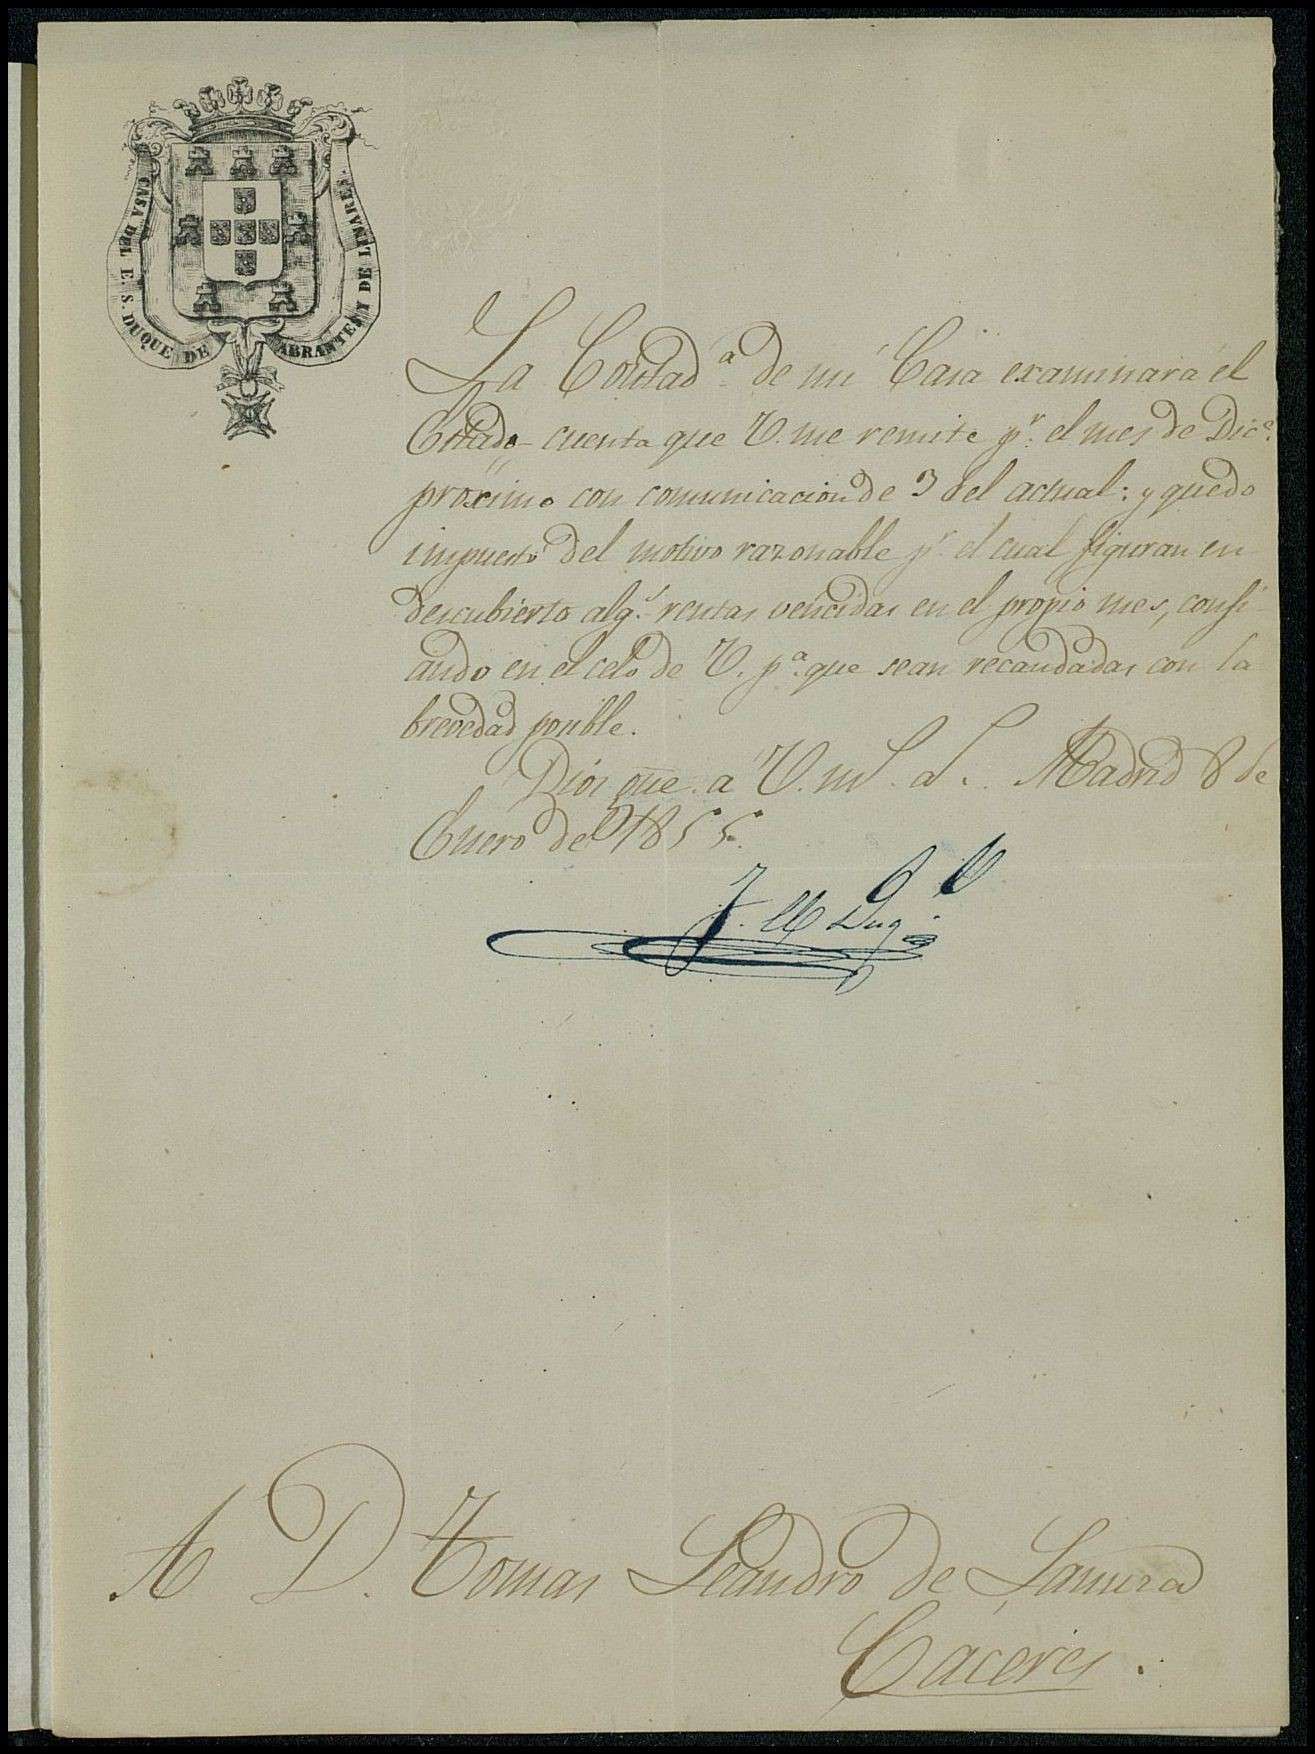 CASA DEL E. S. DUQUE DE ABRANTES Y DE LINARES.
La Contad.ª de mi Casa examinará el
Estado cuenta que V. me remite p.r el mes de Dic.e
próximo con comunicacion de 3 del actual: y quedo
impuesto del motivo razonable p.r el cual figuran en
descubierto alg.s rentas vencidas en el propio mes, confi-
ando en el celo de V. p.ª que sean recaudadas con la
brevedad posible.
Dios gue. a V. m.s a.s Madrid 8 de
Enero de 1855.
El Duq.e
A D. Tomas Leandro de
Cáceres.